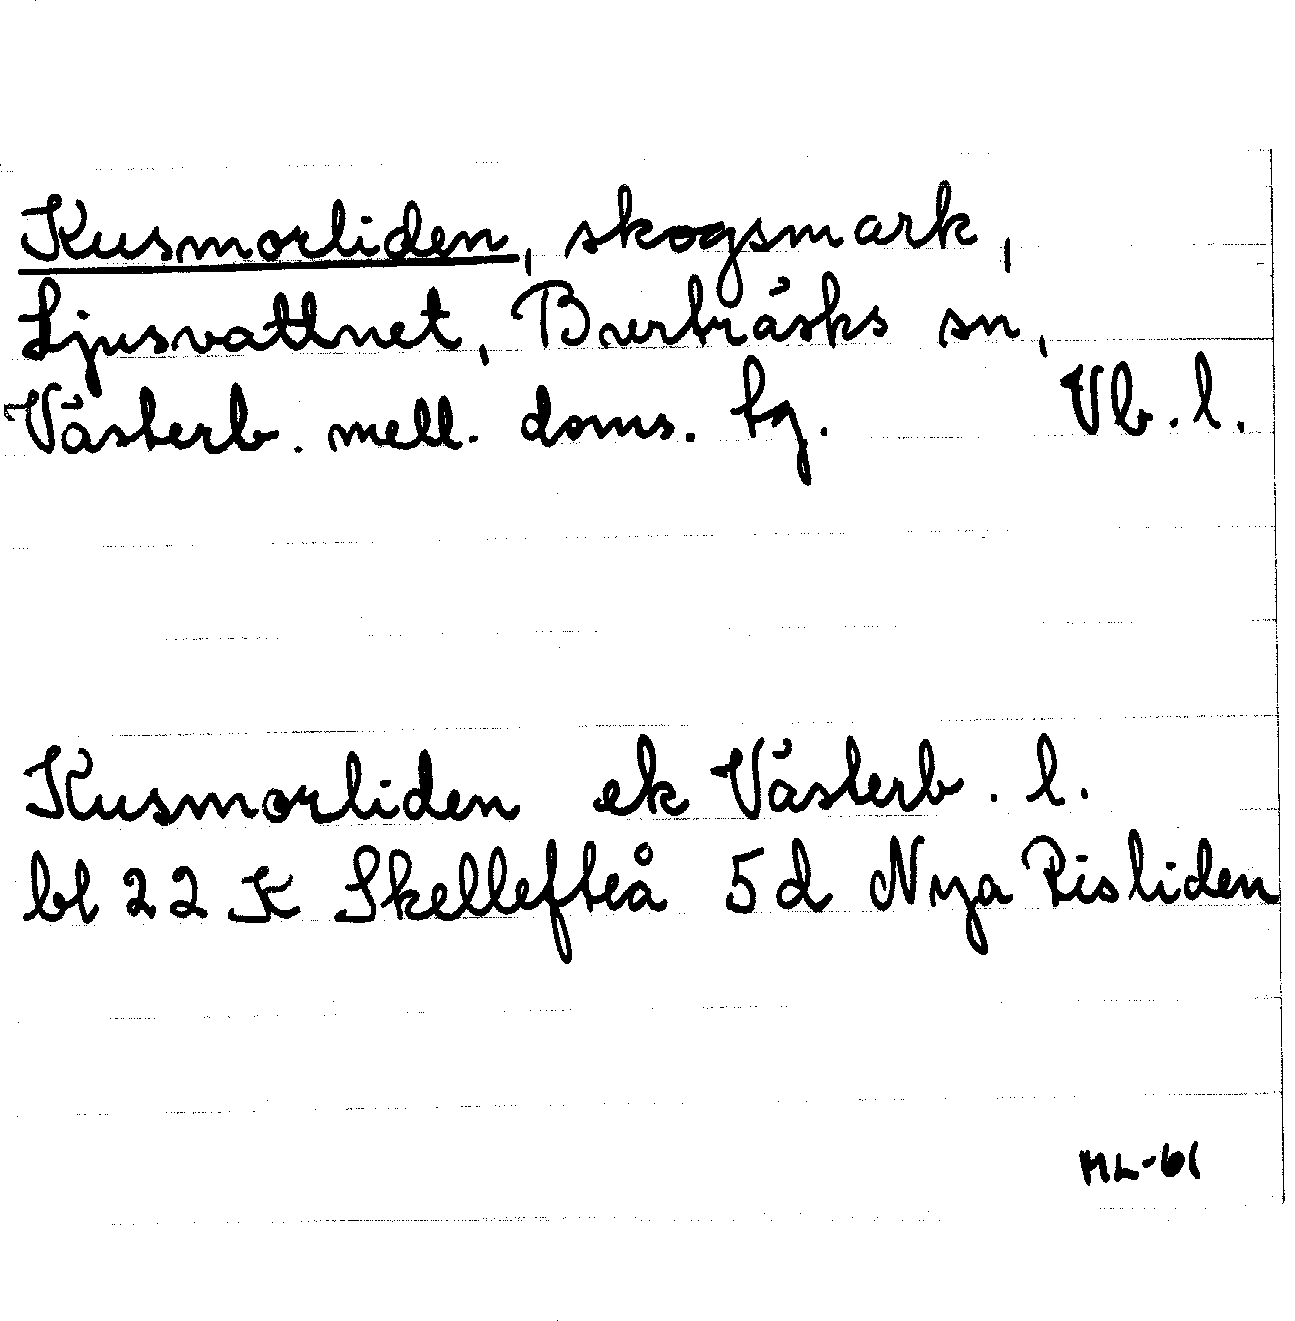 Kusmorliden, skogsmark,
Ljusvattnet, Burträsks sn,
Västerb. mell. doms. tg. Vb. l.
Kusmorliden ek Västerb. l.
bl 22 K Skellefteå 5d Nya Risliden
ML-61